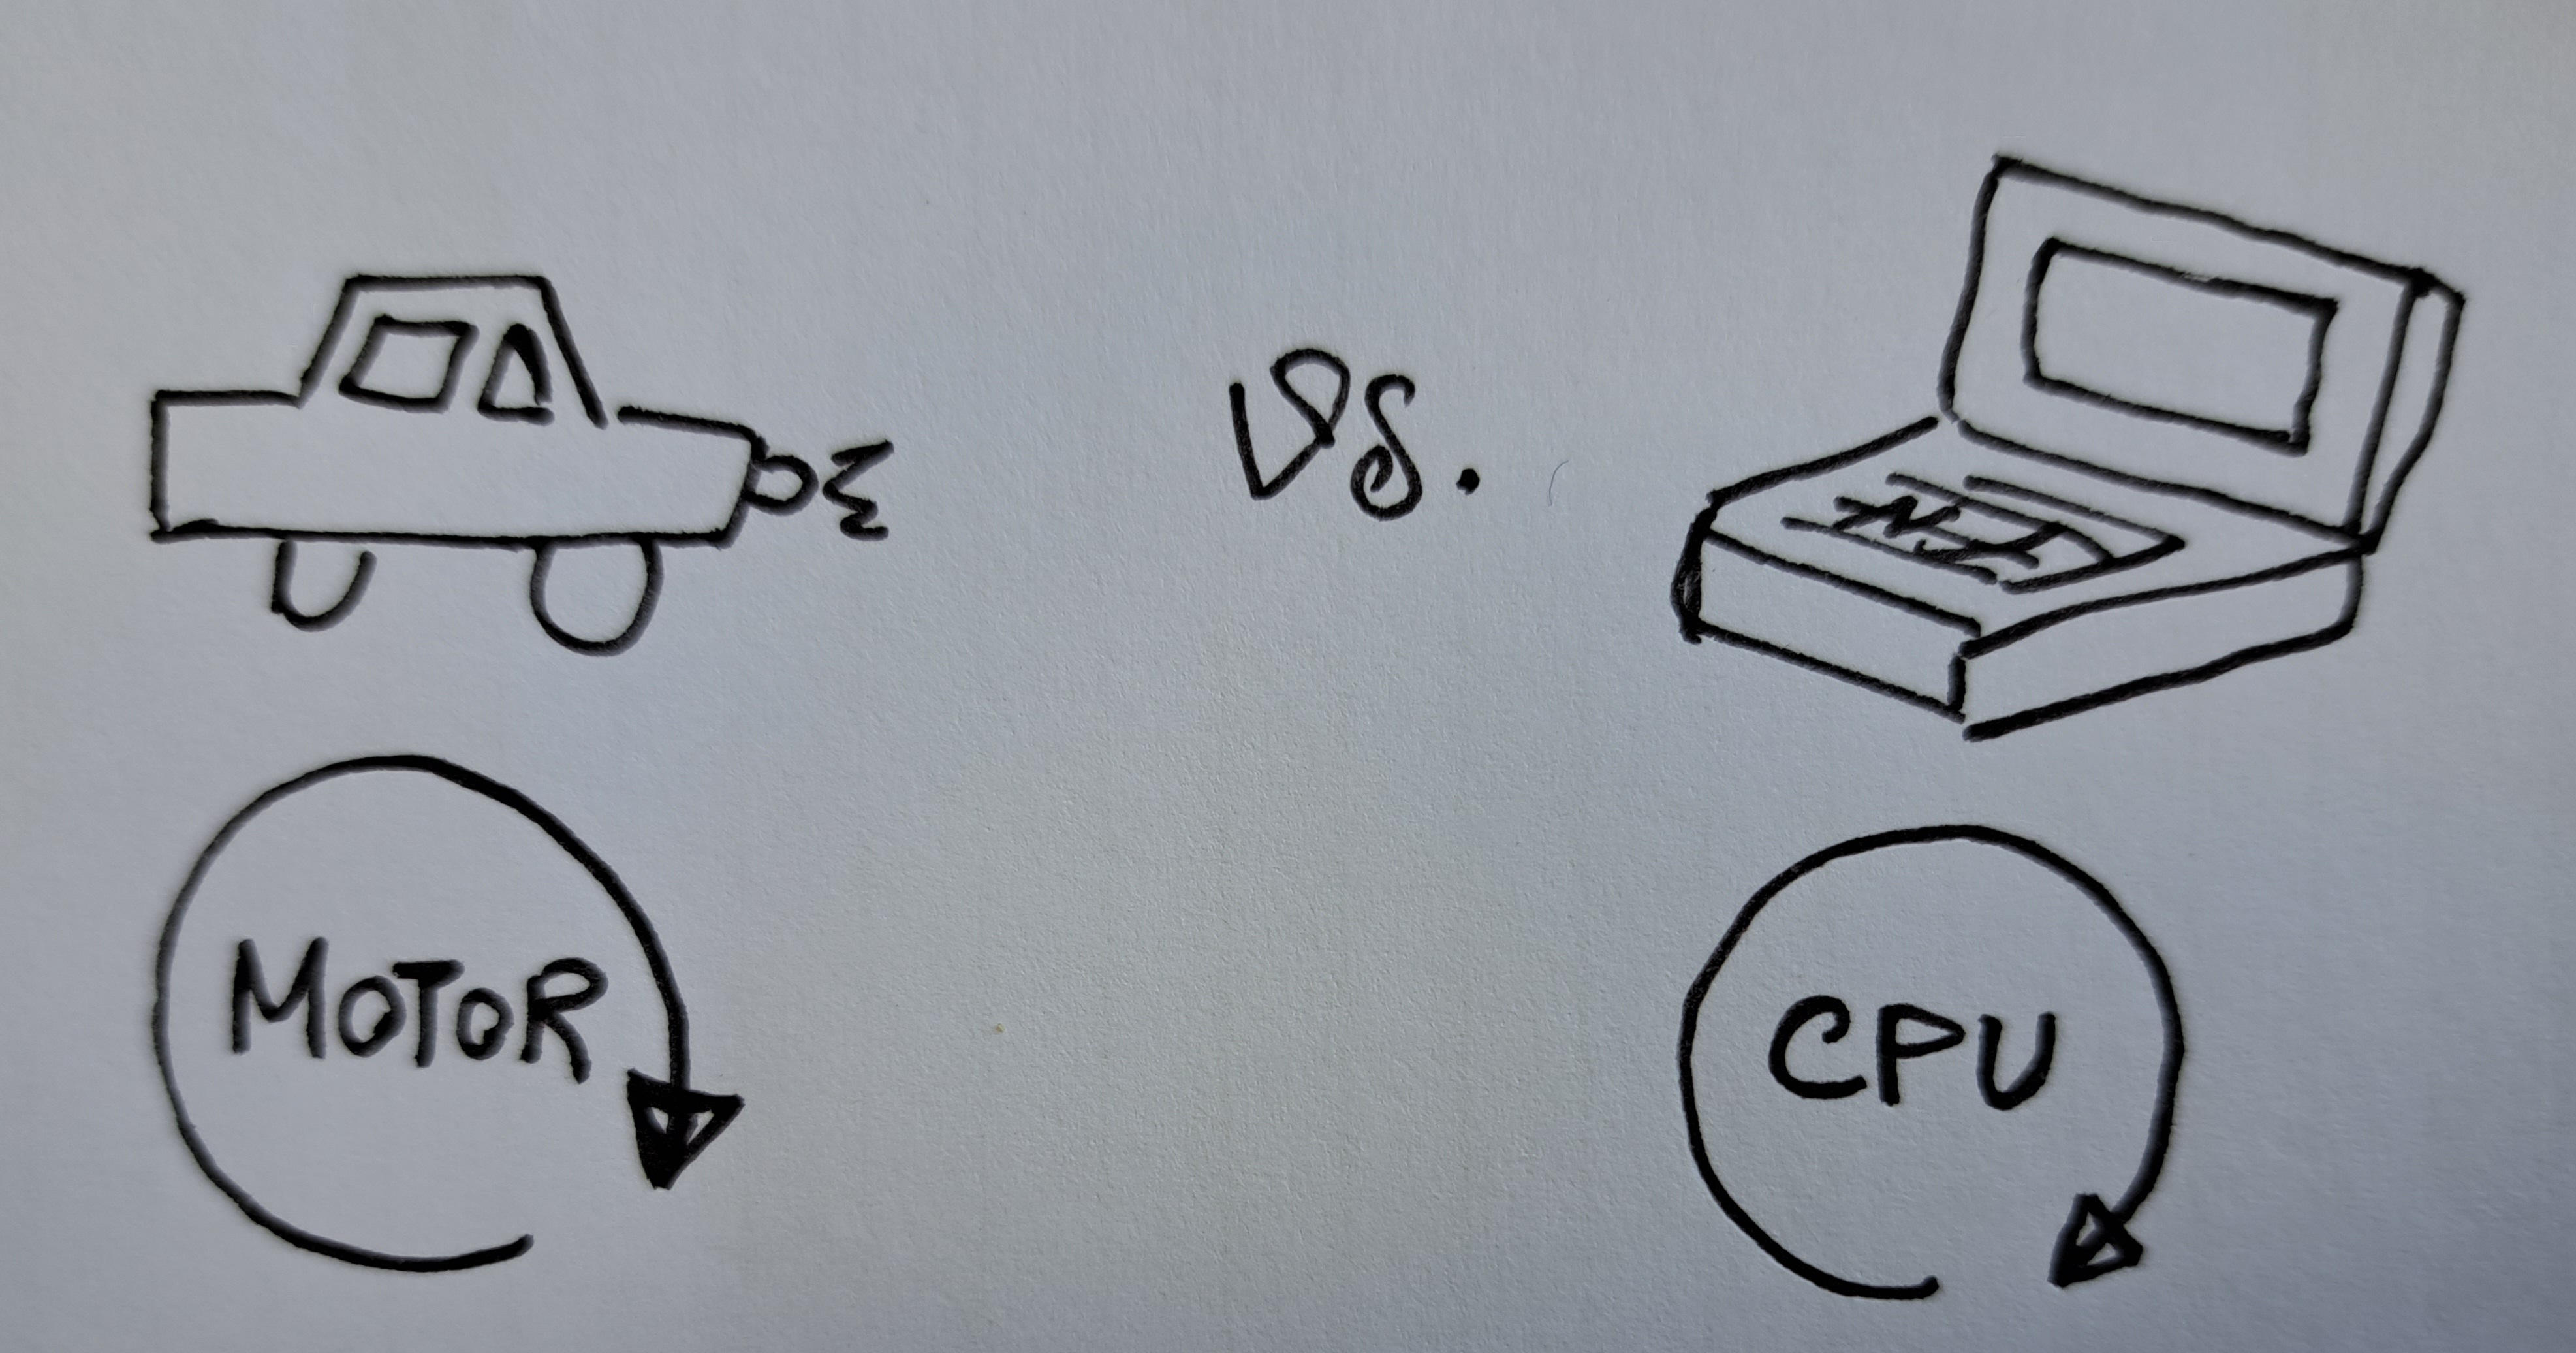 vs.
MOTOR
CPU